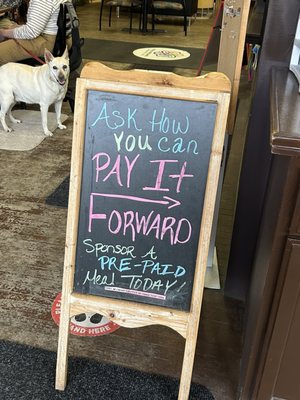 ASK HOW
YOU CAN
PAY IT
FORWARD
SPONSOR A
PRE-PAID
MEAL TODAY!
AND HERE